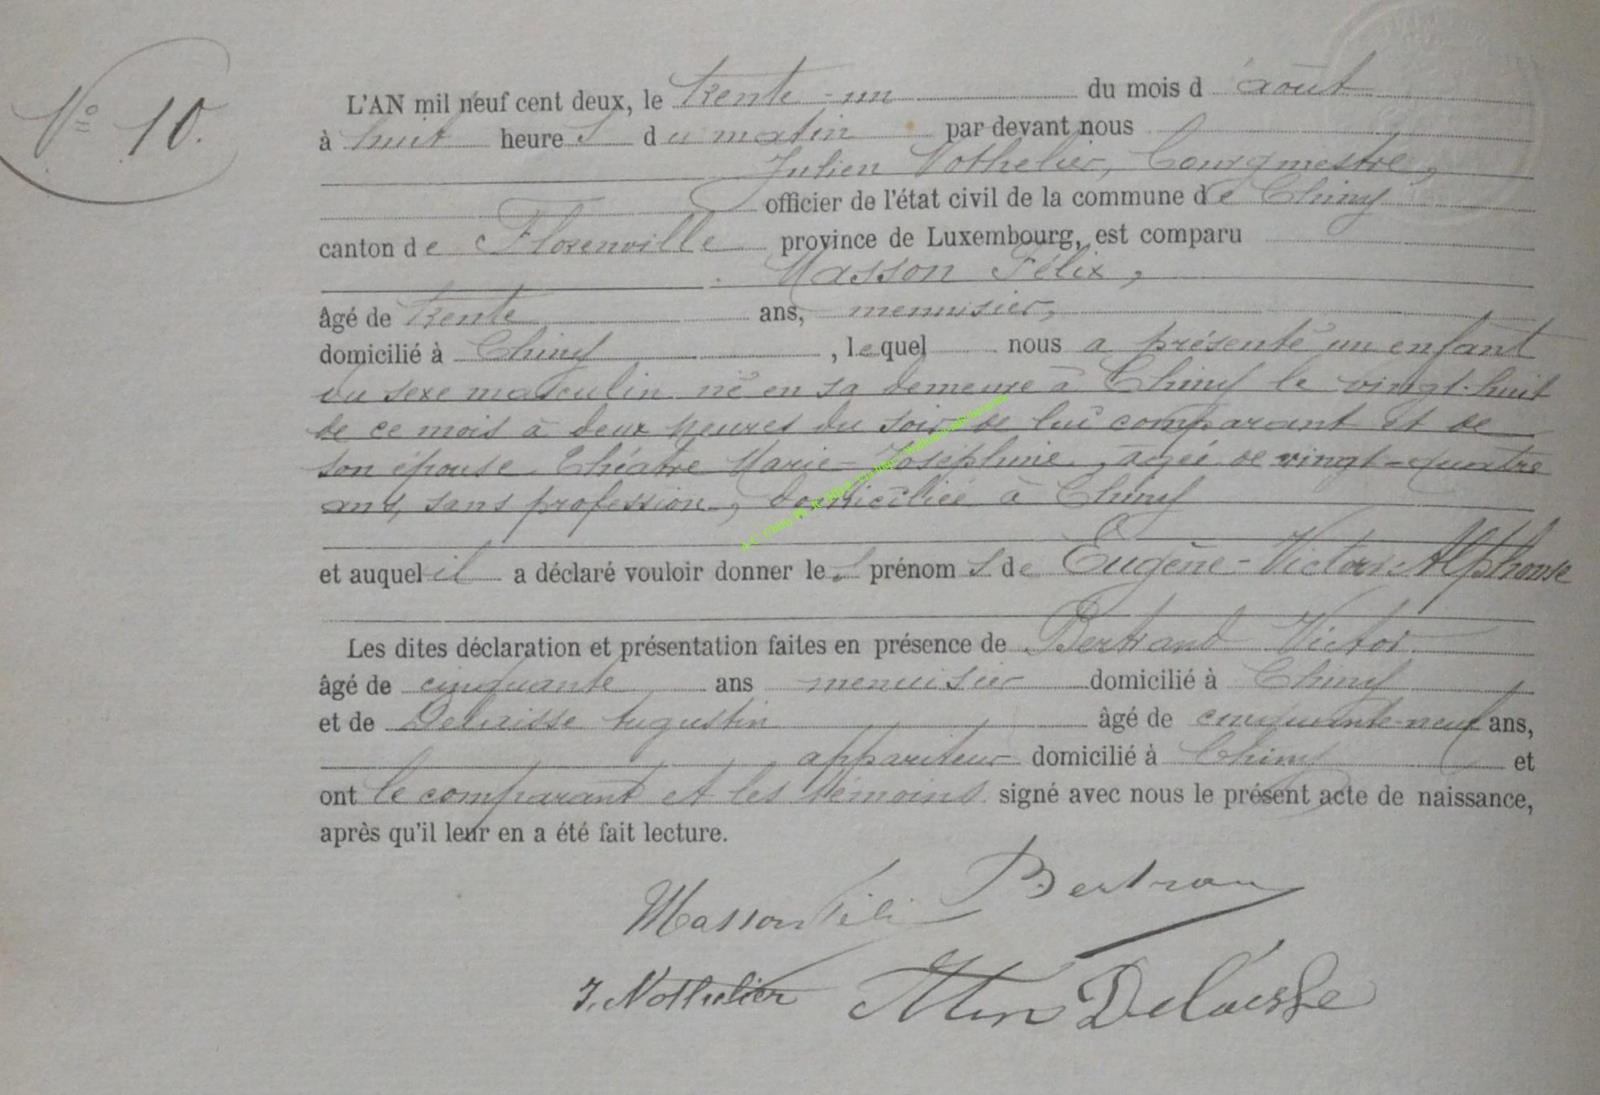 N° 10.
L'AN mil neuf cent deux, le trente-un du mois d'août
à huit heures du matin par devant nous
Julien Nothelier, bourgmestre,
officier de l'état civil de la commune de Chiny
canton de Florenville province de Luxembourg, est comparu
Masson Félix,
âgé de trente ans, menuisier,
domicilié à Chiny, lequel nous a présenté un enfant
du sexe masculin né en sa demeure à Chiny le vingt-huit
de ce mois à deux heures du soir de lui comparant et de
son épouse Théâtre Marie-Joséphine, agée de vingt-quatre
ans, sans profession, domiciliée à Chiny
et auquel il a déclaré vouloir donner les prénoms de Eugène-Victor-Alphonse
Les dites déclaration et présentation faites en présence de Bertrand Victor
âgé de cinquante ans menuisier domicilié à Chiny
et de Delaisse Augustin âgé de cinquante-neuf ans,
appariteur domicilié à Chiny et
ont le comparant et les témoins signé avec nous le présent acte de naissance,
après qu'il leur en a été fait lecture.
Masson Féli Bertran
J. Nothelier Atin Delaisse